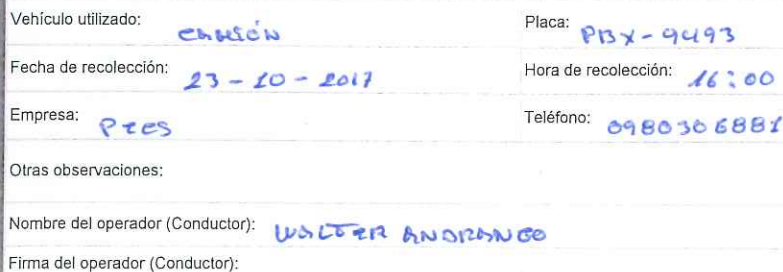 Vehículo utilizado: CAMIÓN Placa: PBX-9493
Fecha de recolección: 23-10-2017 Hora de recolección: 16:00
Empresa: PECS Teléfono: 0980306881
Otras observaciones:
Nombre del operador (Conductor): WALTER ANDRANGO
Firma del operador (Conductor):